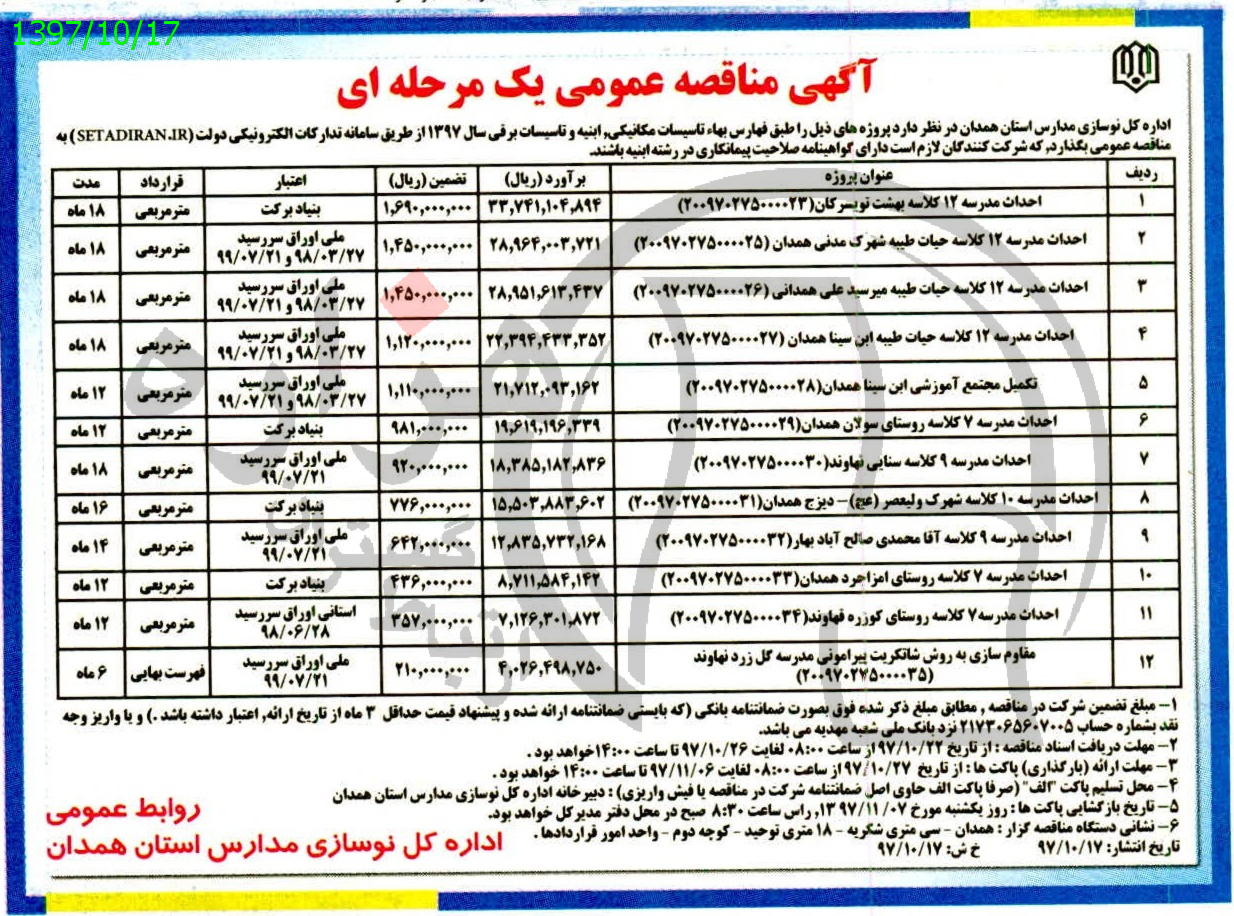 1397/10/17
آگهی مناقصه عمومی یک مرحله ای
اداره کل نوسازی مدارس استان همدان در نظر دارد پروژه های ذیل را طبق فهارس بهاء تاسیسات مکانیکی، ابنیه و تاسیسات برقی سال ۱۳۹۷ از طریق سامانه تدارکات الکترونیکی دولت (SETADIRAN.IR) به
مناقصه عمومی بگذارد، که شرکت کنندگان لازم است دارای گواهینامه صلاحیت پیمانکاری در رشته ابنیه باشند.
ردیف عنوان پروژه برآورد (ریال) تضمین (ریال) اعتبار قرارداد مدت
۱ احداث مدرسه ۱۲ کلاسه بهشت تویسرکان(۲۰۰۹۷۰۲۷۵۰۰۰۰۲۳) ۳۳,۷۴۱,۱۰۴,۸۹۴ ۱,۶۹۰,۰۰۰,۰۰۰ بنیاد برکت مترمربعی ۱۸ ماه
۲ احداث مدرسه ۱۲ کلاسه حیات طیبه شهرک مدنی همدان (۲۰۰۹۷۰۲۷۵۰۰۰۰۲۵) ۲۸,۹۶۴,۰۰۳,۷۲۱ ۱,۴۵۰,۰۰۰,۰۰۰ ملی اوراق سررسید ۹۸/۰۳/۲۷ و ۹۹/۰۷/۲۱ مترمربعی ۱۸ ماه
۳ احداث مدرسه ۱۲ کلاسه حیات طیبه میرسید علی همدانی (۲۰۰۹۷۰۲۷۵۰۰۰۰۲۶) ۲۸,۹۵۱,۶۱۳,۴۳۷ ۱,۴۵۰,۰۰۰,۰۰۰ ملی اوراق سررسید ۹۸/۰۳/۲۷ و ۹۹/۰۷/۲۱ مترمربعی ۱۸ ماه
۴ احداث مدرسه ۱۲ کلاسه حیات طیبه ابن سینا همدان (۲۰۰۹۷۰۲۷۵۰۰۰۰۲۷) ۲۲,۳۹۴,۴۳۳,۳۵۲ ۱,۱۲۰,۰۰۰,۰۰۰ ملی اوراق سررسید ۹۸/۰۳/۲۷ و ۹۹/۰۷/۲۱ مترمربعی ۱۸ ماه
۵ تکمیل مجتمع آموزشی ابن سینا همدان(۲۰۰۹۷۰۲۷۵۰۰۰۰۲۸) ۲۱,۷۱۲,۰۹۳,۱۶۲ ۱,۱۱۰,۰۰۰,۰۰۰ ملی اوراق سررسید ۹۸/۰۳/۲۷ و ۹۹/۰۷/۲۱ مترمربعی ۱۲ ماه
۶ احداث مدرسه ۷ کلاسه روستای سولان همدان(۲۰۰۹۷۰۲۷۵۰۰۰۰۲۹) ۱۹,۶۱۹,۱۹۶,۳۳۹ ۹۸۱,۰۰۰,۰۰۰ بنیاد برکت مترمربعی ۱۲ ماه
۷ احداث مدرسه ۹ کلاسه سنایی نهاوند(۲۰۰۹۷۰۲۷۵۰۰۰۰۳۰) ۱۸,۳۸۵,۱۸۲,۸۳۶ ۹۲۰,۰۰۰,۰۰۰ ملی اوراق سررسید ۹۹/۰۷/۲۱ مترمربعی ۱۸ ماه
۸ احداث مدرسه ۱۰ کلاسه شهرک ولیعصر (عج) – دیزج همدان(۲۰۰۹۷۰۲۷۵۰۰۰۰۳۱) ۱۵,۵۰۳,۸۸۳,۶۰۲ ۷۷۶,۰۰۰,۰۰۰ بنیاد برکت مترمربعی ۱۶ ماه
۹ احداث مدرسه ۹ کلاسه آقا محمدی صالح آباد بهار(۲۰۰۹۷۰۲۷۵۰۰۰۰۳۲) ۱۲,۸۳۵,۷۳۲,۱۶۸ ۶۴۲,۰۰۰,۰۰۰ ملی اوراق سررسید ۹۹/۰۷/۲۱ مترمربعی ۱۴ ماه
۱۰ احداث مدرسه ۷ کلاسه روستای امزاجرد همدان(۲۰۰۹۷۰۲۷۵۰۰۰۰۳۳) ۸,۷۱۱,۵۸۴,۱۴۲ ۴۳۶,۰۰۰,۰۰۰ بنیاد برکت مترمربعی ۱۲ ماه
۱۱ احداث مدرسه۷ کلاسه روستای کوزره قهاوند(۲۰۰۹۷۰۲۷۵۰۰۰۰۳۴) ۷,۱۲۶,۳۰۱,۸۷۲ ۳۵۷,۰۰۰,۰۰۰ استانی اوراق سررسید ۹۸/۰۶/۲۸ مترمربعی ۱۲ ماه
۱۲ مقاوم سازی به روش شاتکریت پیرامونی مدرسه گل زرد نهاوند (۲۰۰۹۷۰۲۷۵۰۰۰۰۳۵) ۴,۰۲۶,۴۹۸,۷۵۰ ۲۱۰,۰۰۰,۰۰۰ ملی اوراق سررسید ۹۹/۰۷/۲۱ فهرست بهایی ۶ ماه
۱– مبلغ تضمین شرکت در مناقصه , مطابق مبلغ ذکر شده فوق بصورت ضمانتنامه بانکی (که بایستی ضمانتنامه ارائه شده و پیشنهاد قیمت حداقل ۳ ماه از تاریخ ارائه, اعتبار داشته باشد .) و یا واریز وجه
نقد بشماره حساب ۲۱۷۳۰۶۵۶۰۷۰۰۵ نزد بانک ملی شعبه مهدیه می باشد.
۲– مهلت دریافت اسناد مناقصه : از تاریخ ۹۷/۱۰/۲۲ از ساعت ۰۸:۰۰ لغایت ۹۷/۱۰/۲۶ تا ساعت ۱۴:۰۰ خواهد بود .
۳– مهلت ارائه (بارگذاری) پاکت ها : از تاریخ ۹۷/۱۰/۲۷ از ساعت ۰۸:۰۰ لغایت ۹۷/۱۱/۰۶ تا ساعت ۱۴:۰۰ خواهد بود .
۴– محل تسلیم پاکت "الف" (صرفا پاکت الف حاوی اصل ضمانتنامه شرکت در مناقصه یا فیش واریزی) : دبیرخانه اداره کل نوسازی مدارس استان همدان
۵– تاریخ بازگشایی پاکت ها : روز یکشنبه مورخ ۱۳۹۷/۱۱/۰۷, راس ساعت ۸:۳۰ صبح در محل دفتر مدیرکل خواهد بود.
۶– نشانی دستگاه مناقصه گزار : همدان – سی متری شکریه – ۱۸ متری توحید – کوچه دوم – واحد امور قراردادها .
تاریخ انتشار: ۹۷/۱۰/۱۷ خ ش: ۹۷/۱۰/۱۷
روابط عمومی
اداره کل نوسازی مدارس استان همدان